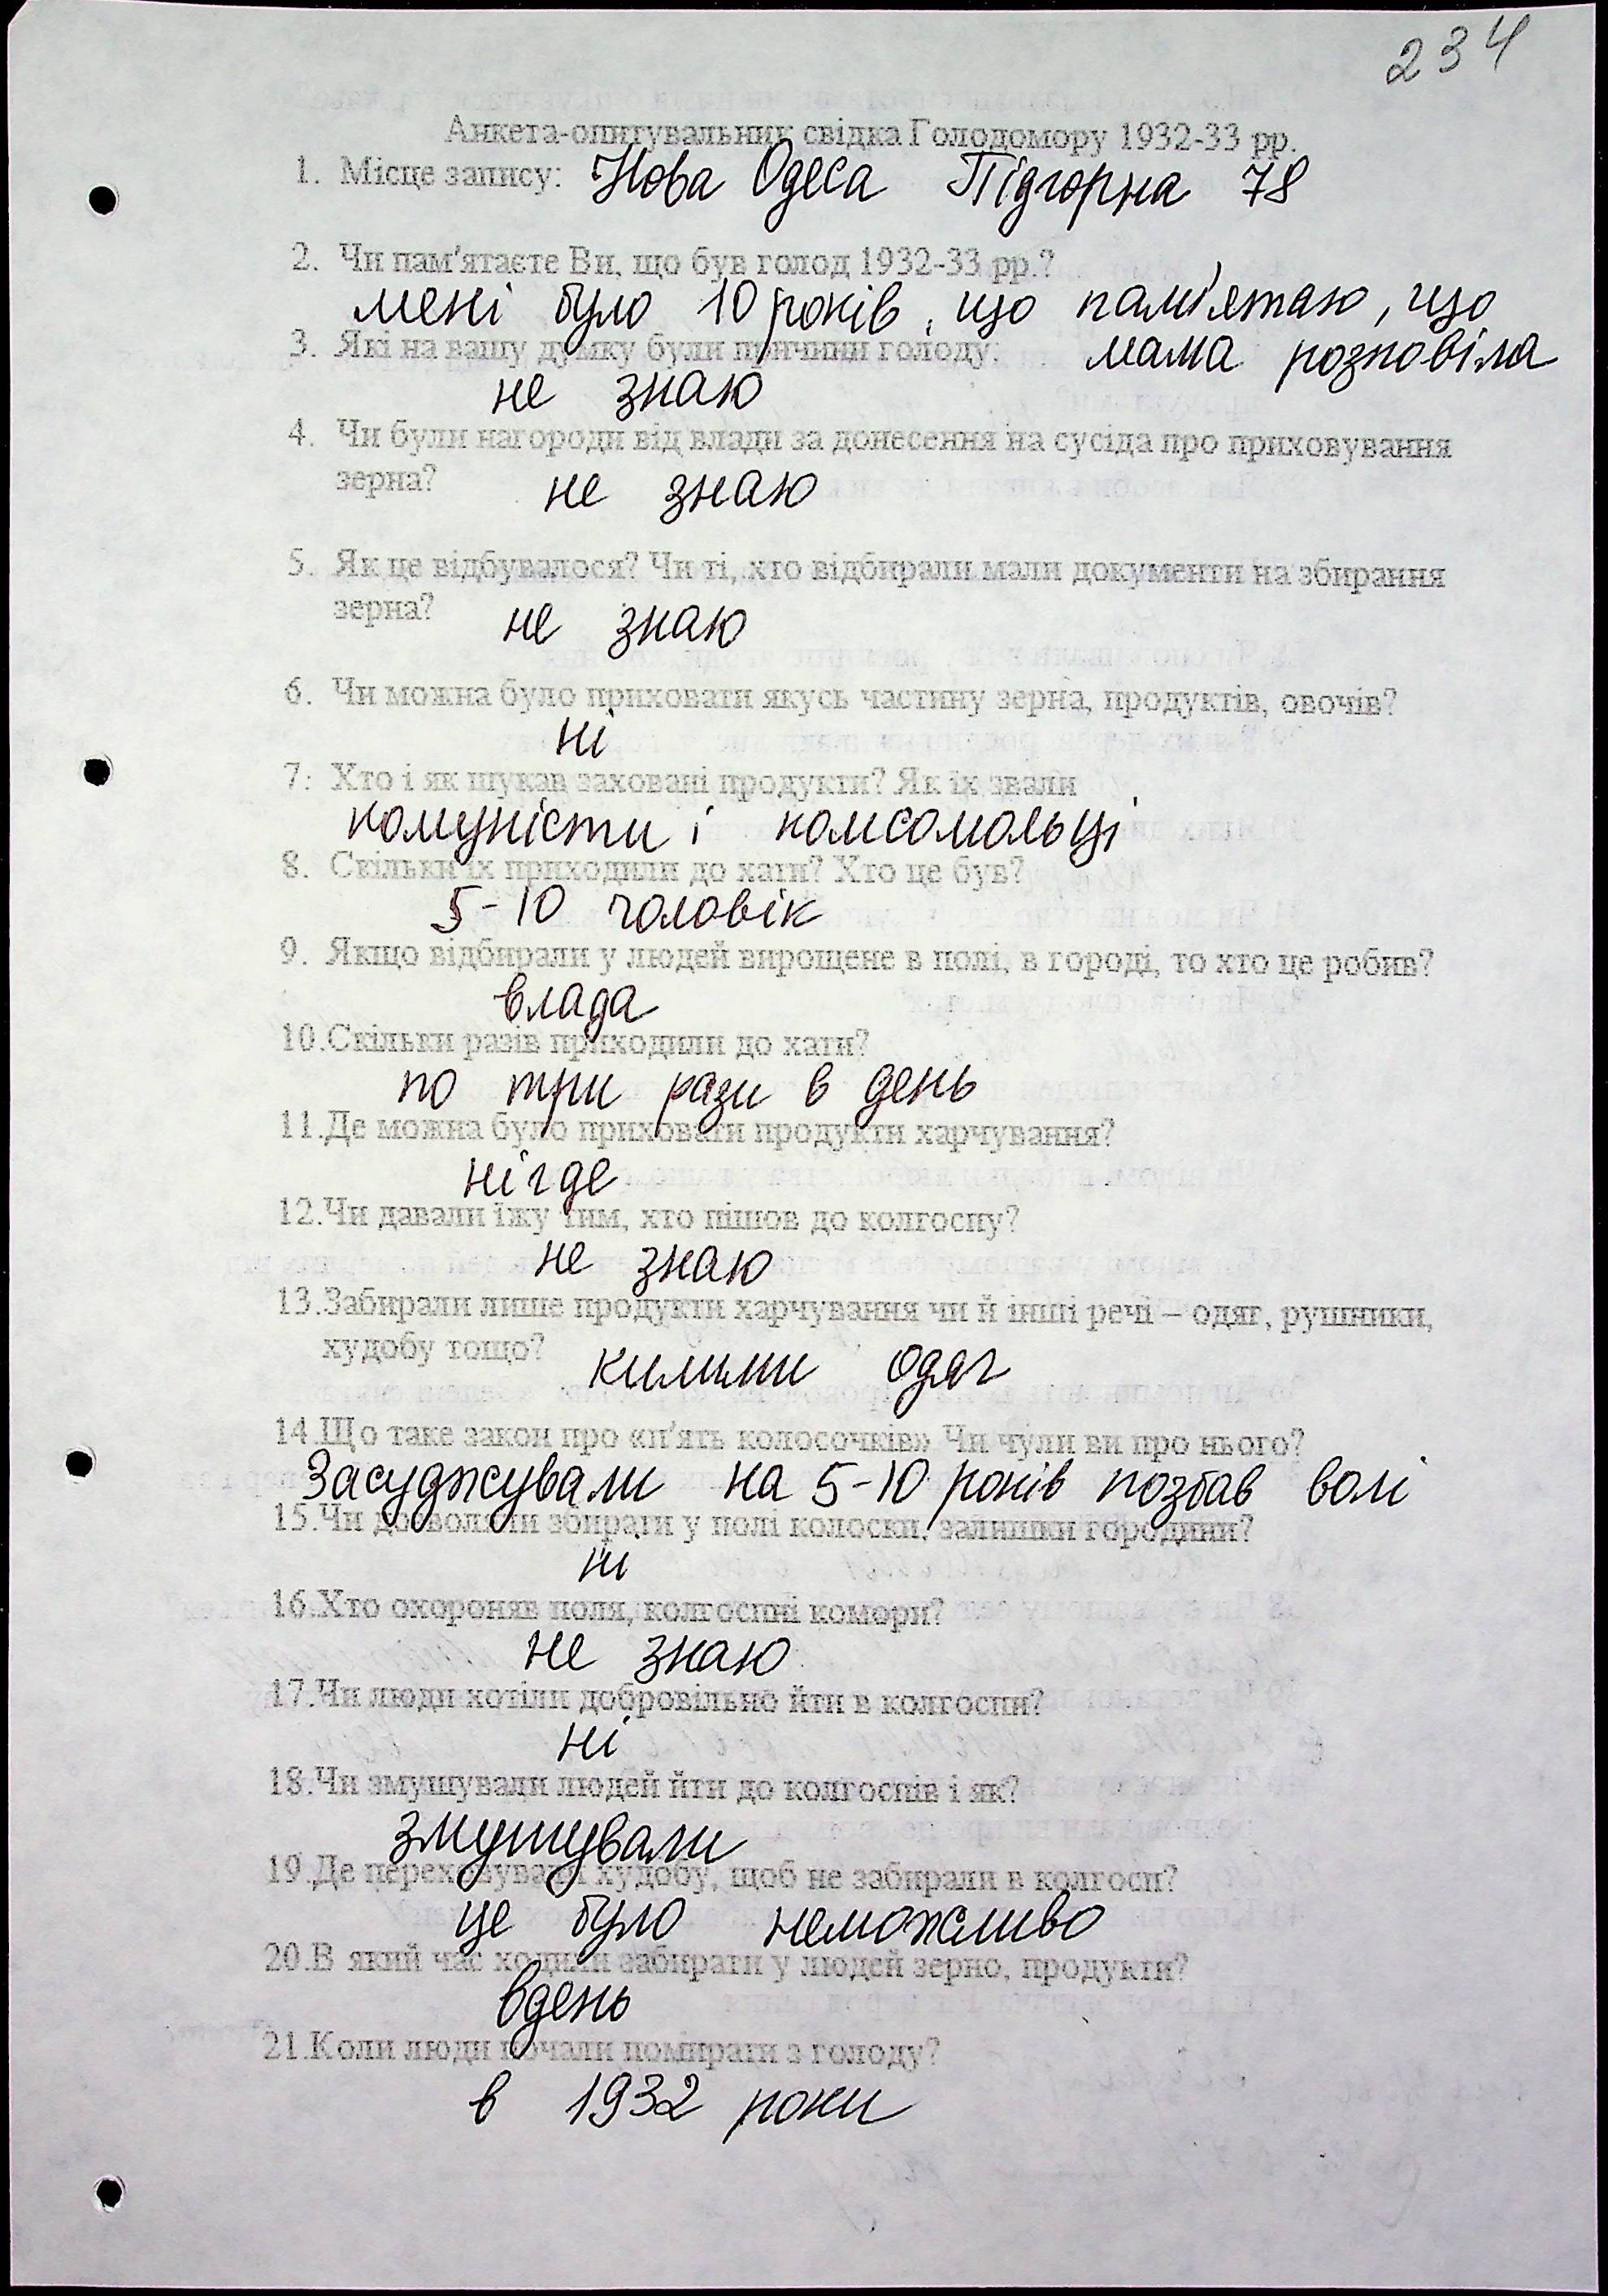 234
Анкета-опитувальник свідка Голодомору 1932-33 рр.
1. Місце запису: Нова Одеса Підгорна 78
2. Чи пам'ятаєте Ви, що був голод 1932-33 рр.?
мені було 10 років, що пам'ятаю, що
мама розповіла
3. Які на вашу думку були причини голоду:
не знаю
4. Чи були нагороди від влади за донесення на сусіда про приховування
зерна? не знаю
5. Як це відбувалося? Чи ті, хто відбирали мали документи на збирання
зерна? не знаю
6. Чи можна було приховати якусь частину зерна, продуктів, овочів?
ні
7. Хто і як шукав заховані продукти? Як їх звали
комуністи і комсомольці
8. Скільки їх приходили до хати? Хто це був?
5-10 чоловік
9. Якщо відбирали у людей вирощене в полі, в городі, то хто це робив?
влада
10.Скільки разів приходили до хати?
по три рази в день
11.Де можна було приховати продукти харчування?
нігде
12.Чи давали їжу тим, хто пішов до колгоспу?
не знаю
13.Забирали лише продукти харчування чи й інші речі – одяг, рушники,
худобу тощо? килими одяг
14.Що таке закон про «п'ять колосочків» Чи чули ви про нього?
Засуджували на 5-10 років позбав волі
15.Чи дозволяли збирати у полі колоски, залишки городини?
ні
16.Хто охороняв поля, колгоспні комори?
не знаю
17.Чи люди хотіли добровільно йти в колгоспи?
ні
18.Чи змушували людей йти до колгоспів і як?
змушували
19.Де переховували худобу, щоб не забирали в колгосп?
це було неможливо
20.В який час ходили забирати у людей зерно, продукти?
вдень
21.Коли люди почали помирати з голоду?
в 1932 роки